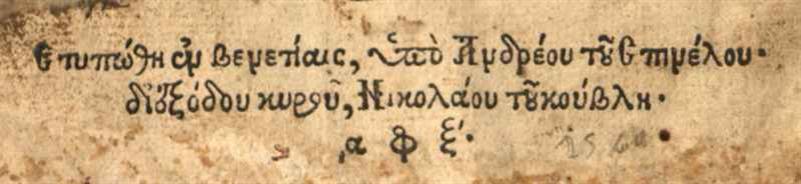 Ετυπώθη ἐν Βενετίαις, ὑπὸ Ἀνδρέου τοῦ Σπινέλου·
δἰἐξόδου κυροῦ, Νικολάου τοῦ κούβλη·
͵α φ ξ΄· 1560